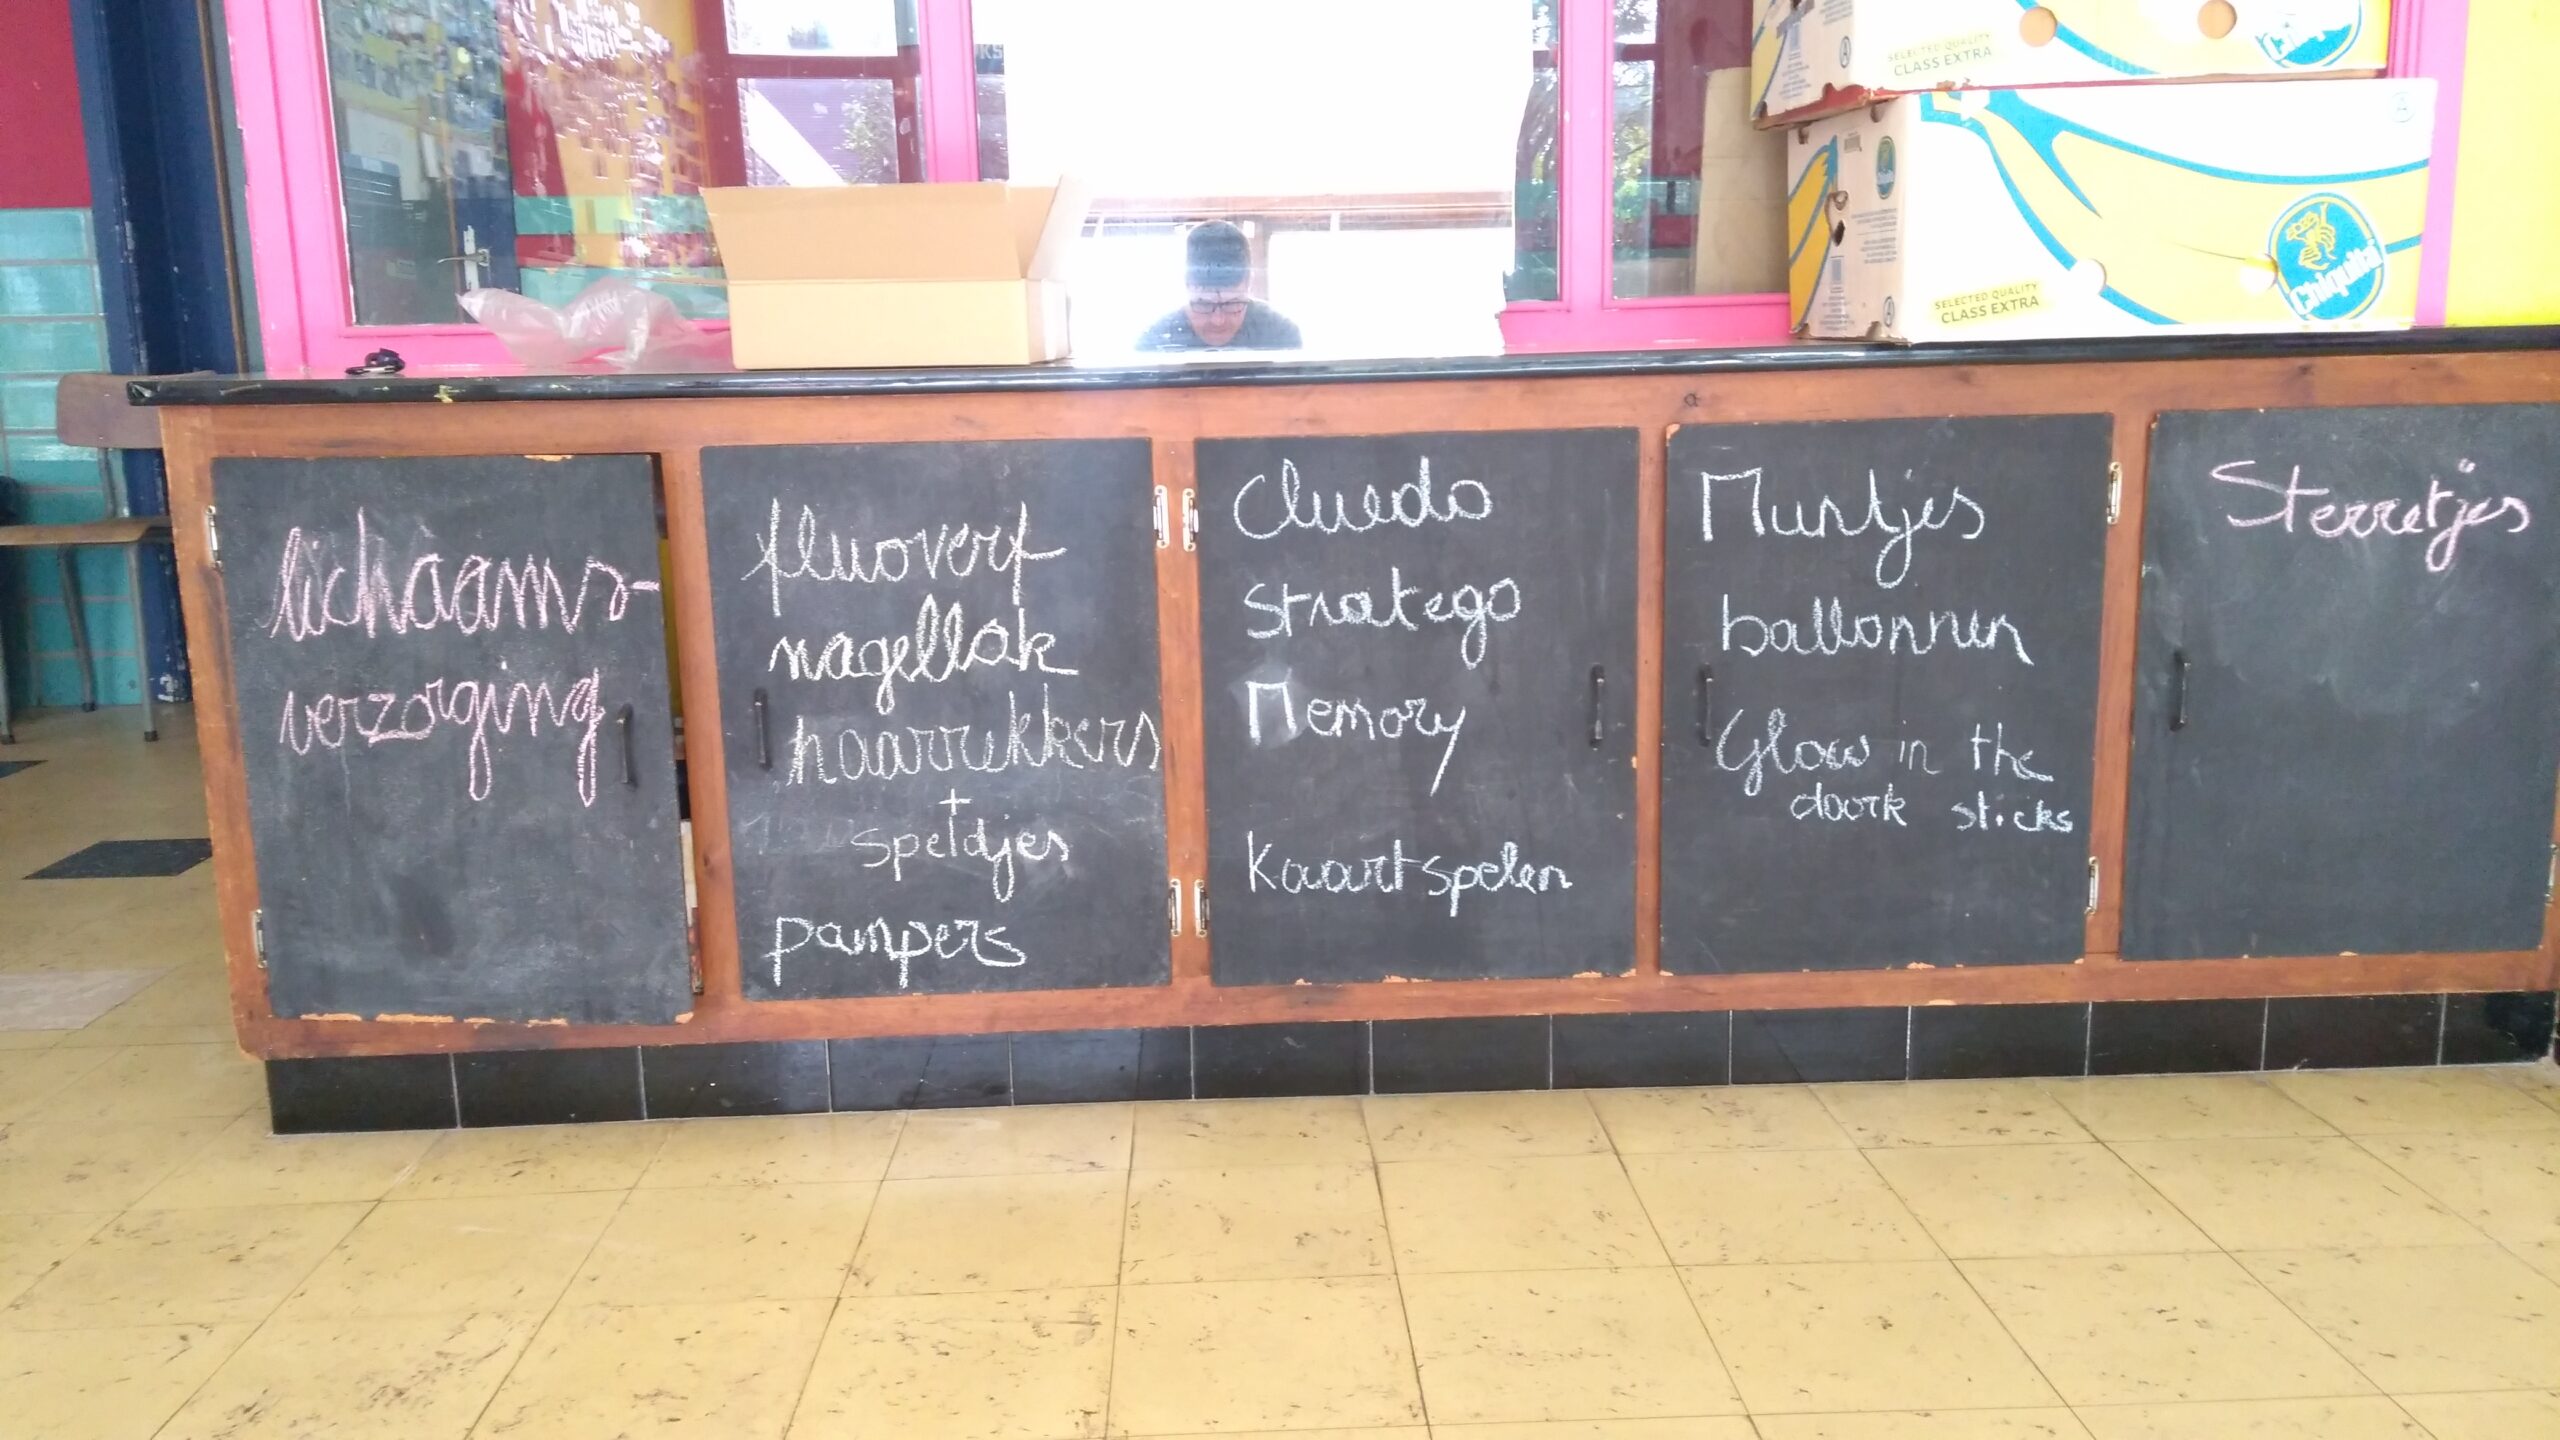 SELECTED QUALITY
CLASS EXTRA
SELECTED QUALITY
CLASS EXTRA
Chiquita
lichaams-
verzorging
fluoverf
nagellak
haarrekkers
+
speldjes
pampers
Cluedo
Stratego
Memory
Kaartspelen
Muntjes
ballonnen
Glow in the
daork sticks
Sterretjes